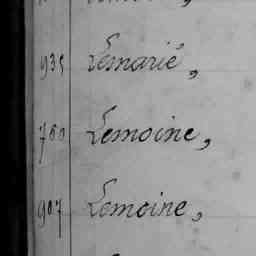 935 Lemarié,
780 Lemoine,
907 Lemoine,